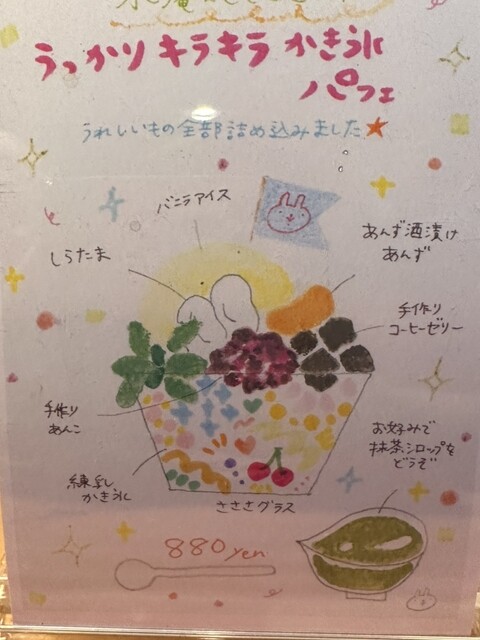 うっかりキラキラかき氷
パフェ
うれしいもの全部詰め込みました★
バニラアイス
しらたま
あんず酒漬け
あんず
手作り
コーヒーゼリー
手作り
あんこ
お好みで
抹茶シロップを
どうぞ
練乳
かき氷
さささグラス
880yen